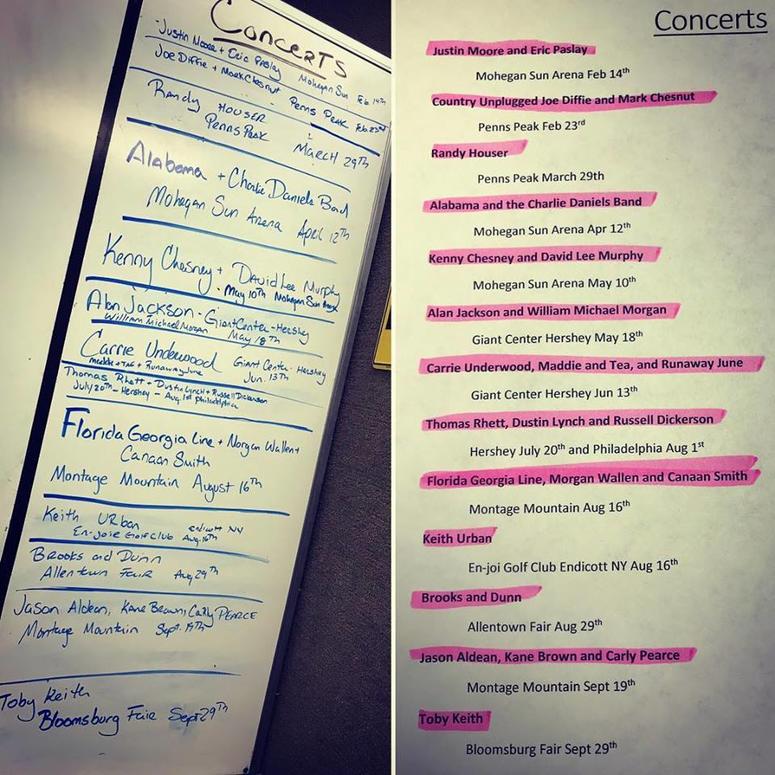 Concerts
Justin Moore + Eric Paslay Mohegan Sun Feb 14th
Joe Diffie + Mark Chesnut Penns Peak Feb 23rd
Randy Houser
Penns Peak March 29th
Alabama + Charlie Daniels Band
Mohegan Sun Arena April 12th
Kenny Chesney + David Lee Murphy
May 10th Mohegan Sun Arena
Alan Jackson - Giant Center - Hershey
William Michael Morgan May 18th
Carrie Underwood Giant Center - Hershey
Maddie + Tae + Runaway June Jun. 13th
Thomas Rhett + Dustin Lynch + Russell Dickerson
July 20th - Hershey - Aug. 1st Philadelphia
Florida Georgia Line + Morgan Wallen +
Canaan Smith
Montage Mountain August 16th
Keith Urban Endicott NY
En-Joie Golf Club Aug. 16th
Brooks and Dunn
Allentown Fair Aug 29th
Jason Aldean, Kane Brown, Carly PEARCE
Montage Mountain Sept. 19th
Toby Keith
Bloomsburg Fair Sept 29th
Concerts
Justin Moore and Eric Paslay
Mohegan Sun Arena Feb 14th
Country Unplugged Joe Diffie and Mark Chesnut
Penns Peak Feb 23rd
Randy Houser
Penns Peak March 29th
Alabama and the Charlie Daniels Band
Mohegan Sun Arena Apr 12th
Kenny Chesney and David Lee Murphy
Mohegan Sun Arena May 10th
Alan Jackson and William Michael Morgan
Giant Center Hershey May 18th
Carrie Underwood, Maddie and Tea, and Runaway June
Giant Center Hershey Jun 13th
Thomas Rhett, Dustin Lynch and Russell Dickerson
Hershey July 20th and Philadelphia Aug 1st
Florida Georgia Line, Morgan Wallen and Canaan Smith
Montage Mountain Aug 16th
Keith Urban
En-joi Golf Club Endicott NY Aug 16th
Brooks and Dunn
Allentown Fair Aug 29th
Jason Aldean, Kane Brown and Carly Pearce
Montage Mountain Sept 19th
Toby Keith
Bloomsburg Fair Sept 29th